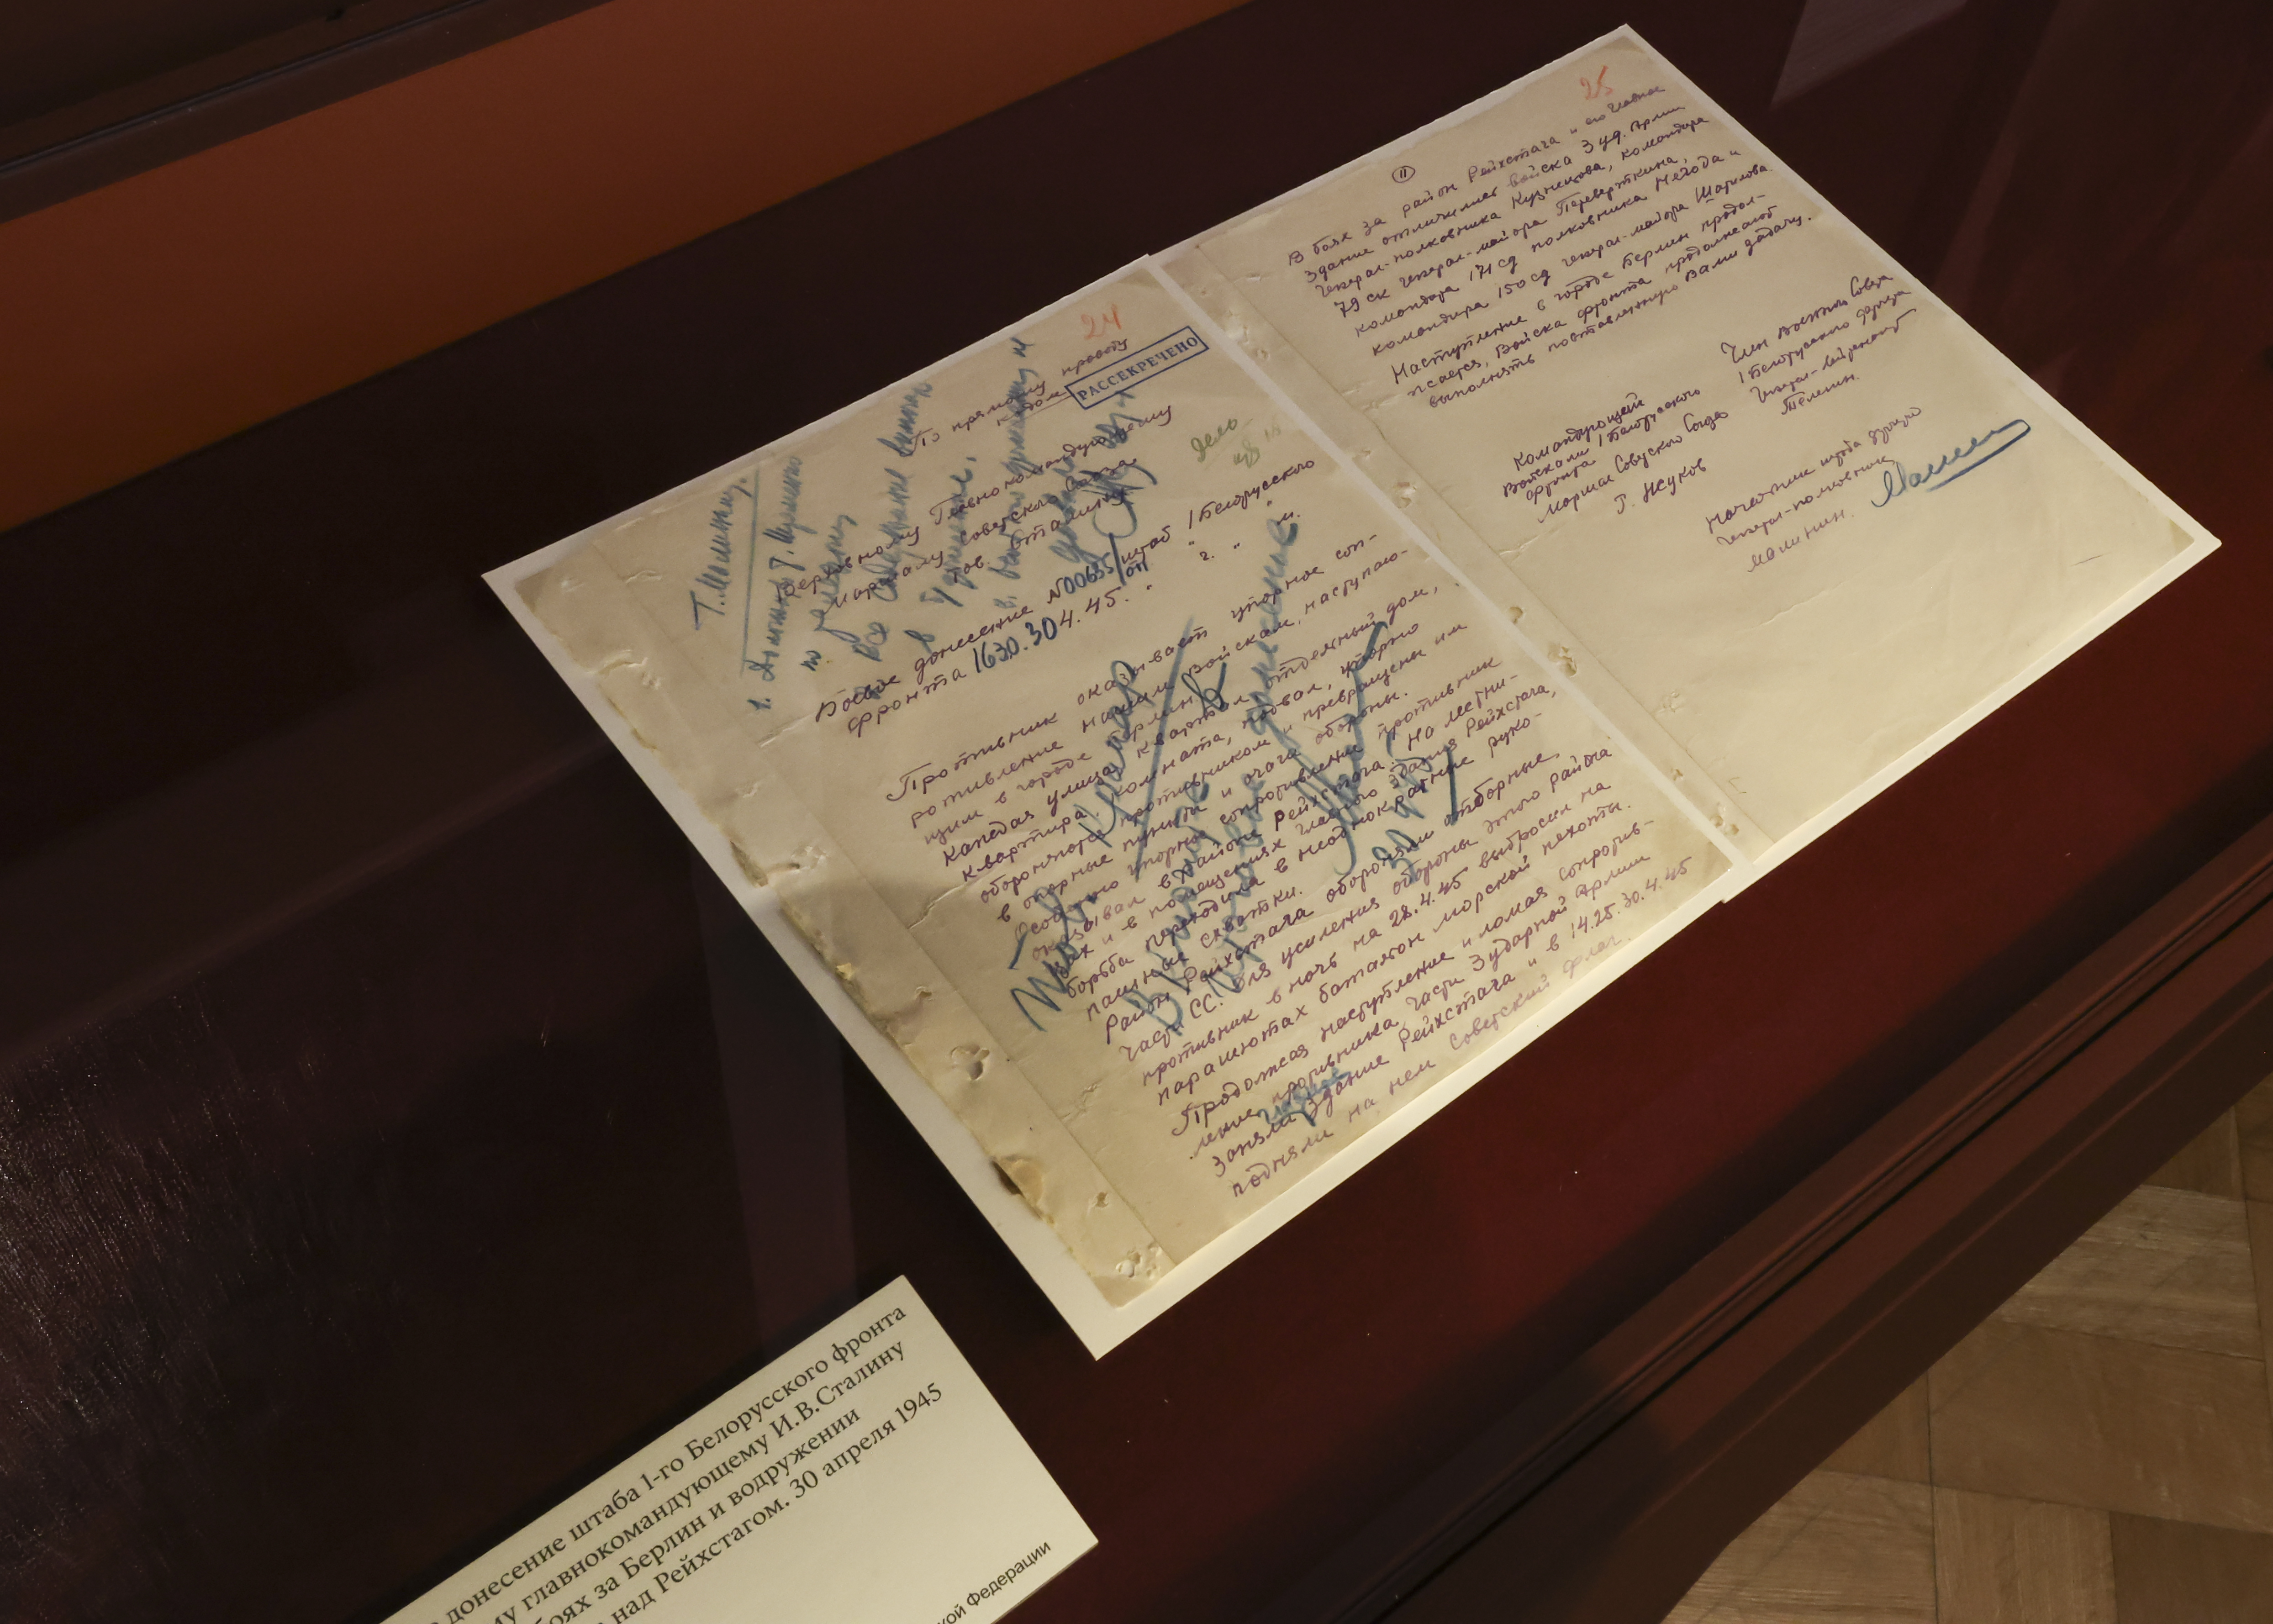 24
По прямому проводу
кодом
РАССЕКРЕЧЕНО
Верховному Главнокомандующему
Маршалу Советского Союза
тов. Сталину
Дело
Т. Малинину.
Боевое донесение №00635/оп штаб 1 Белорусского
фронта 1630.30 4.45. " г. " м.
Противник оказывает упорное соп-
ротивление нашим войскам, наступаю-
щим в городе Берлин
Каждая улица, квартал, отдельный дом,
квартира, комната, подвал, упорно
обороняются противником и превращены им
в опорные пункты и очаги обороны.
Особенно упорное сопротивление противник
оказывал в районе Рейхстага. На лестни-
цах и в помещениях главного здания Рейхстага,
борьба переходила в неоднократные руко-
пашные схватки.
Район Рейхстага обороняли отборные
части СС. Для усиления обороны этого района
противник в ночь на 28.4.45 выбросил на
парашютах батальон морской пехоты.
Продолжая наступление и ломая сопротив-
ление противника, части 3 ударной Армии
заняли главное здание Рейхстага и в 14.25.30.4.45
подняли на нем Советский флаг.
25
11
В боях за район Рейхстага и его главное
здание отличились войска 3 уд. Армии
генерал-полковника Кузнецова, командира
79 ск генерал-майора Переверткина,
командира 171 сд полковника Негода и
командира 150 сд генерал-майора Шатилова.
Наступление в городе Берлин продол-
жается, войска фронта продолжают
выполнять поставленную Вами задачу.
Командующий
войсками 1 Белорусского
фронта
Маршал Советского Союза
Г. Жуков
Член Военного Совета
1 Белорусского фронта
генерал-лейтенант
Телегин.
Начальник штаба фронта
генерал-полковник
Малинин.
донесение штаба 1-го Белорусского фронта
главнокомандующему И.В.Сталину
за Берлин и водружении
над Рейхстагом. 30 апреля 1945
Федерации